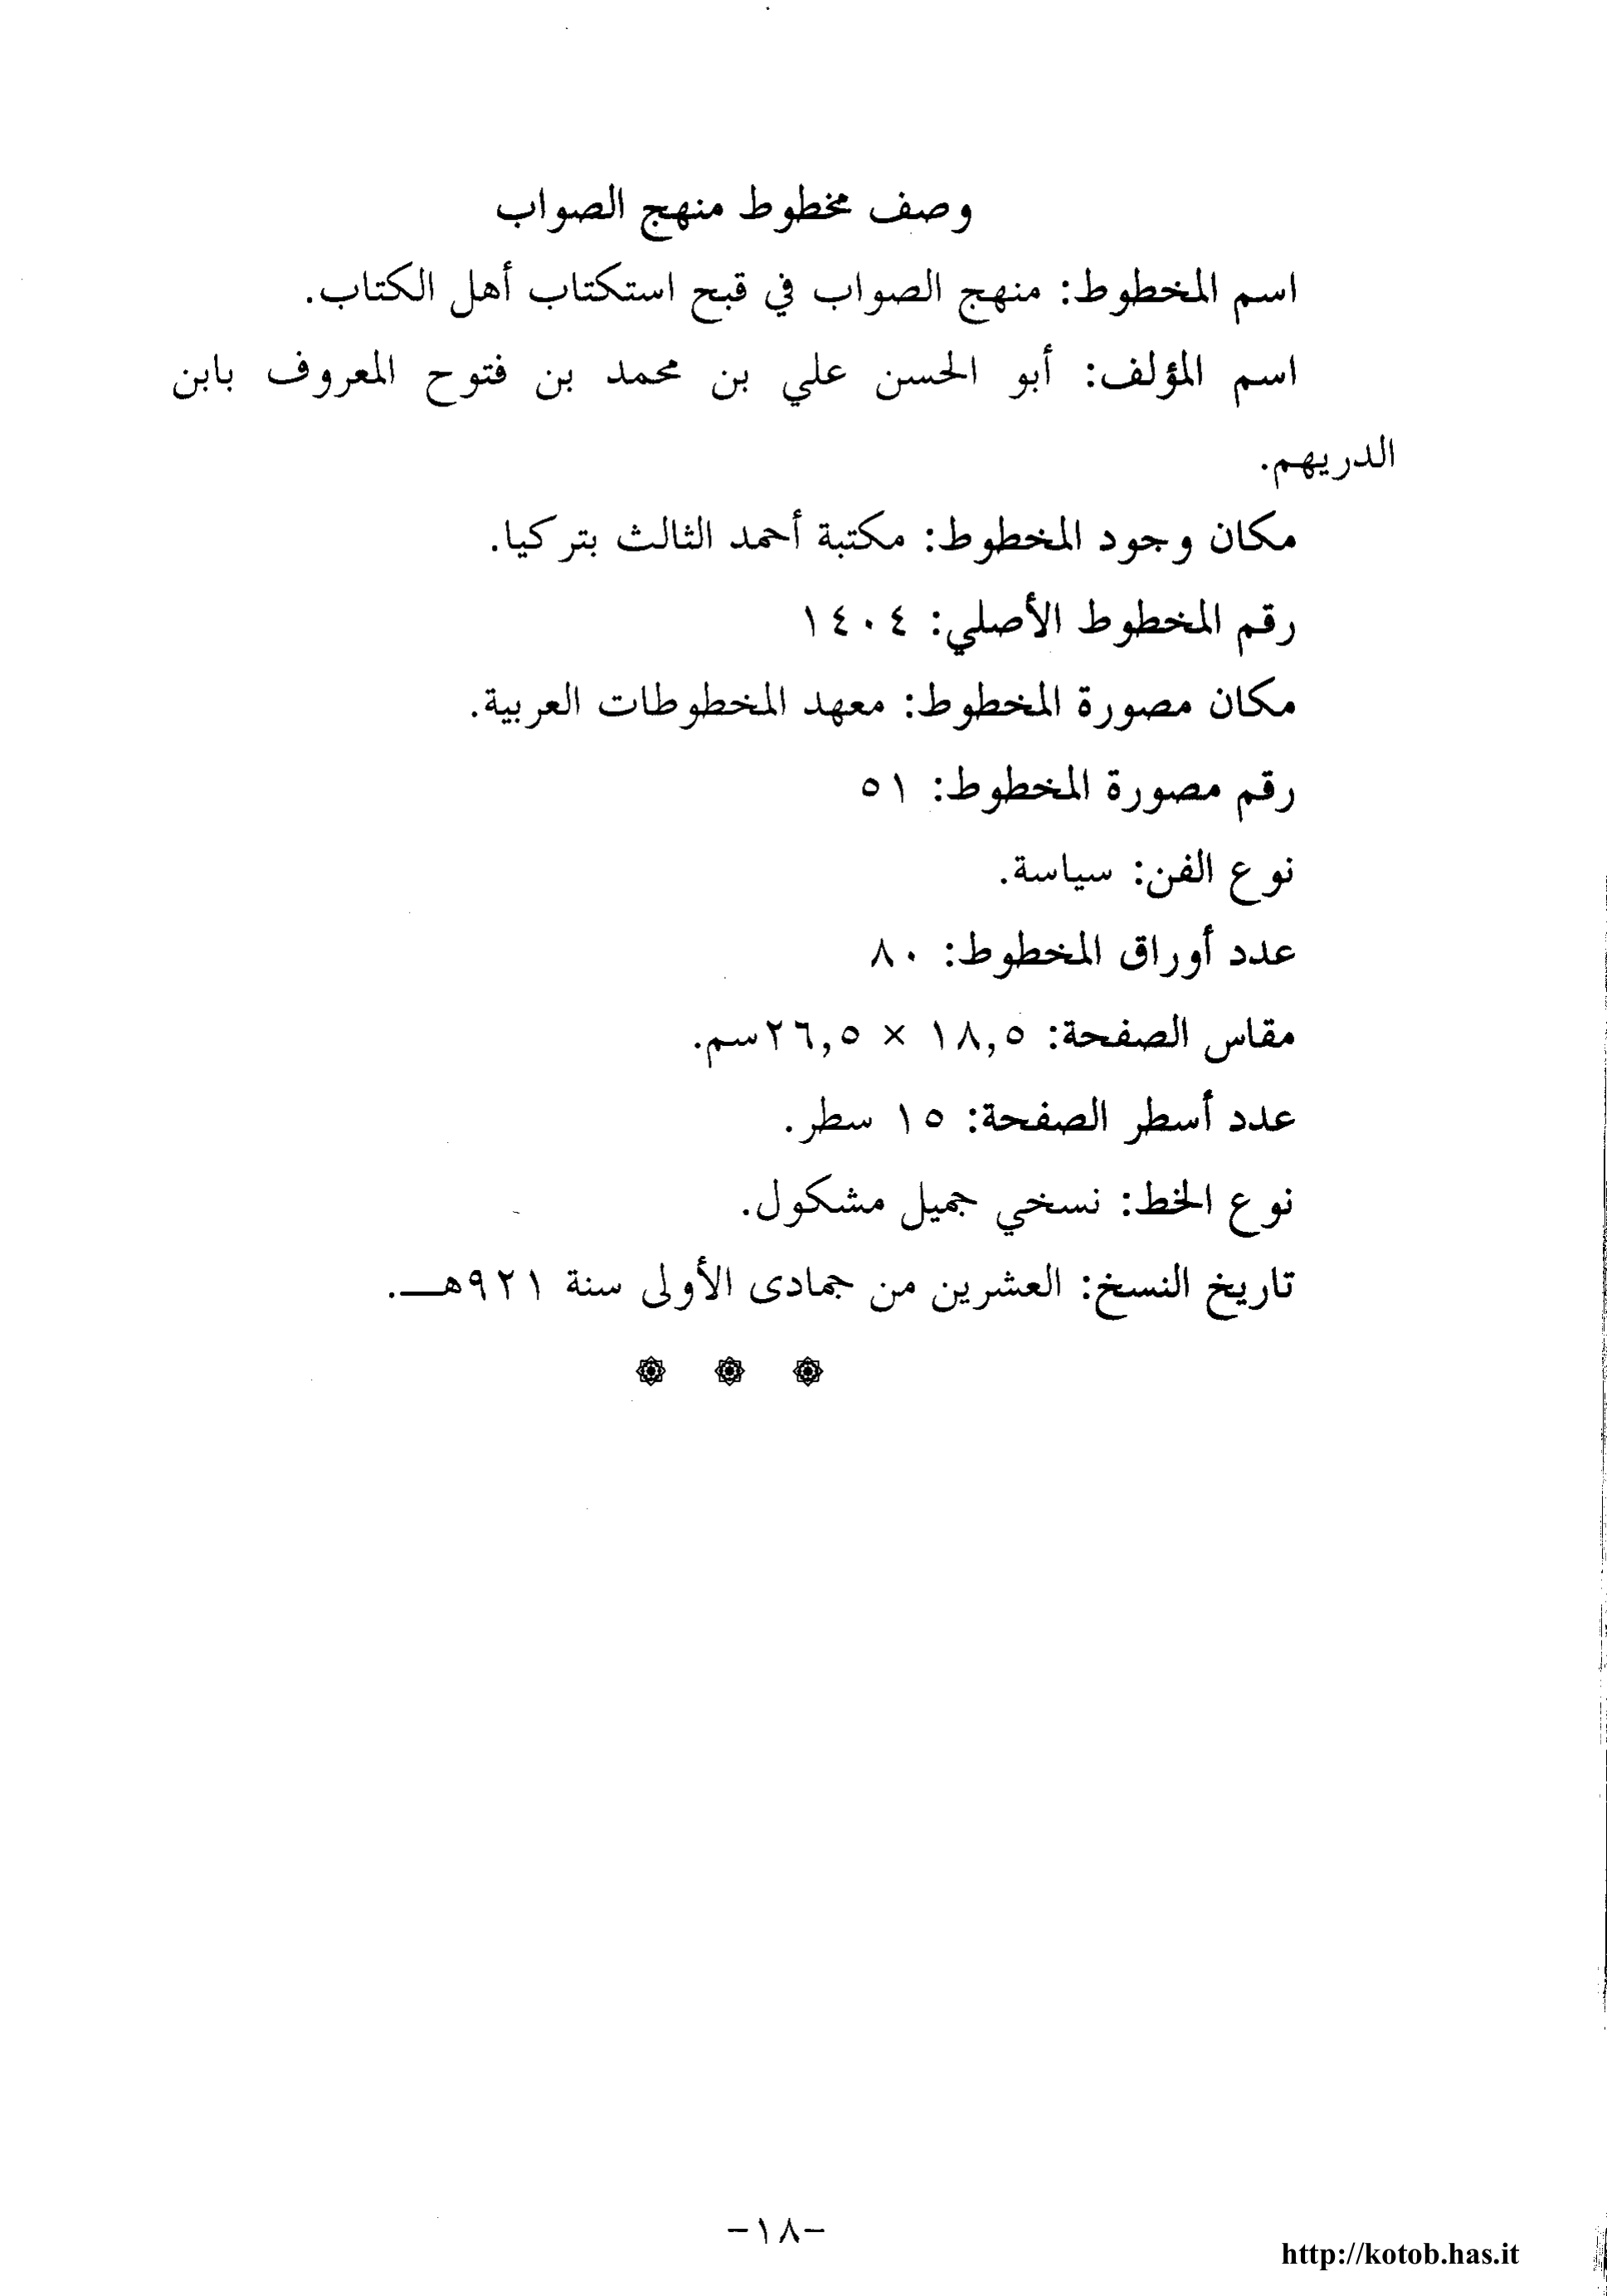 وصف مخطوط منهج الصواب
اسم المخطوط: منهج الصواب في قبح استكتاب أهل الكتاب.
اسم المؤلف: أبو الحسن علي بن محمد بن فتوح المعروف بابن
الدريهم.
مكان وجود المخطوط: مكتبة أحمد الثالث بتركيا.
رقم المخطوط الأصلي: ١٤٠٤
مكان مصورة المخطوط: معهد المخطوطات العربية.
رقم مصورة المخطوط: ٥١
نوع الفن: سياسة.
عدد أوراق المخطوط: ٨٠
مقاس الصفحة: ١٨,٥ × ٢٦,٥سم.
عدد أسطر الصفحة: ١٥ سطر.
نوع الخط: نسخي جميل مشكول.
تاريخ النسخ: العشرين من جمادى الأولى سنة ٩٢١هــ.
-١٨-
http://kotob.has.it